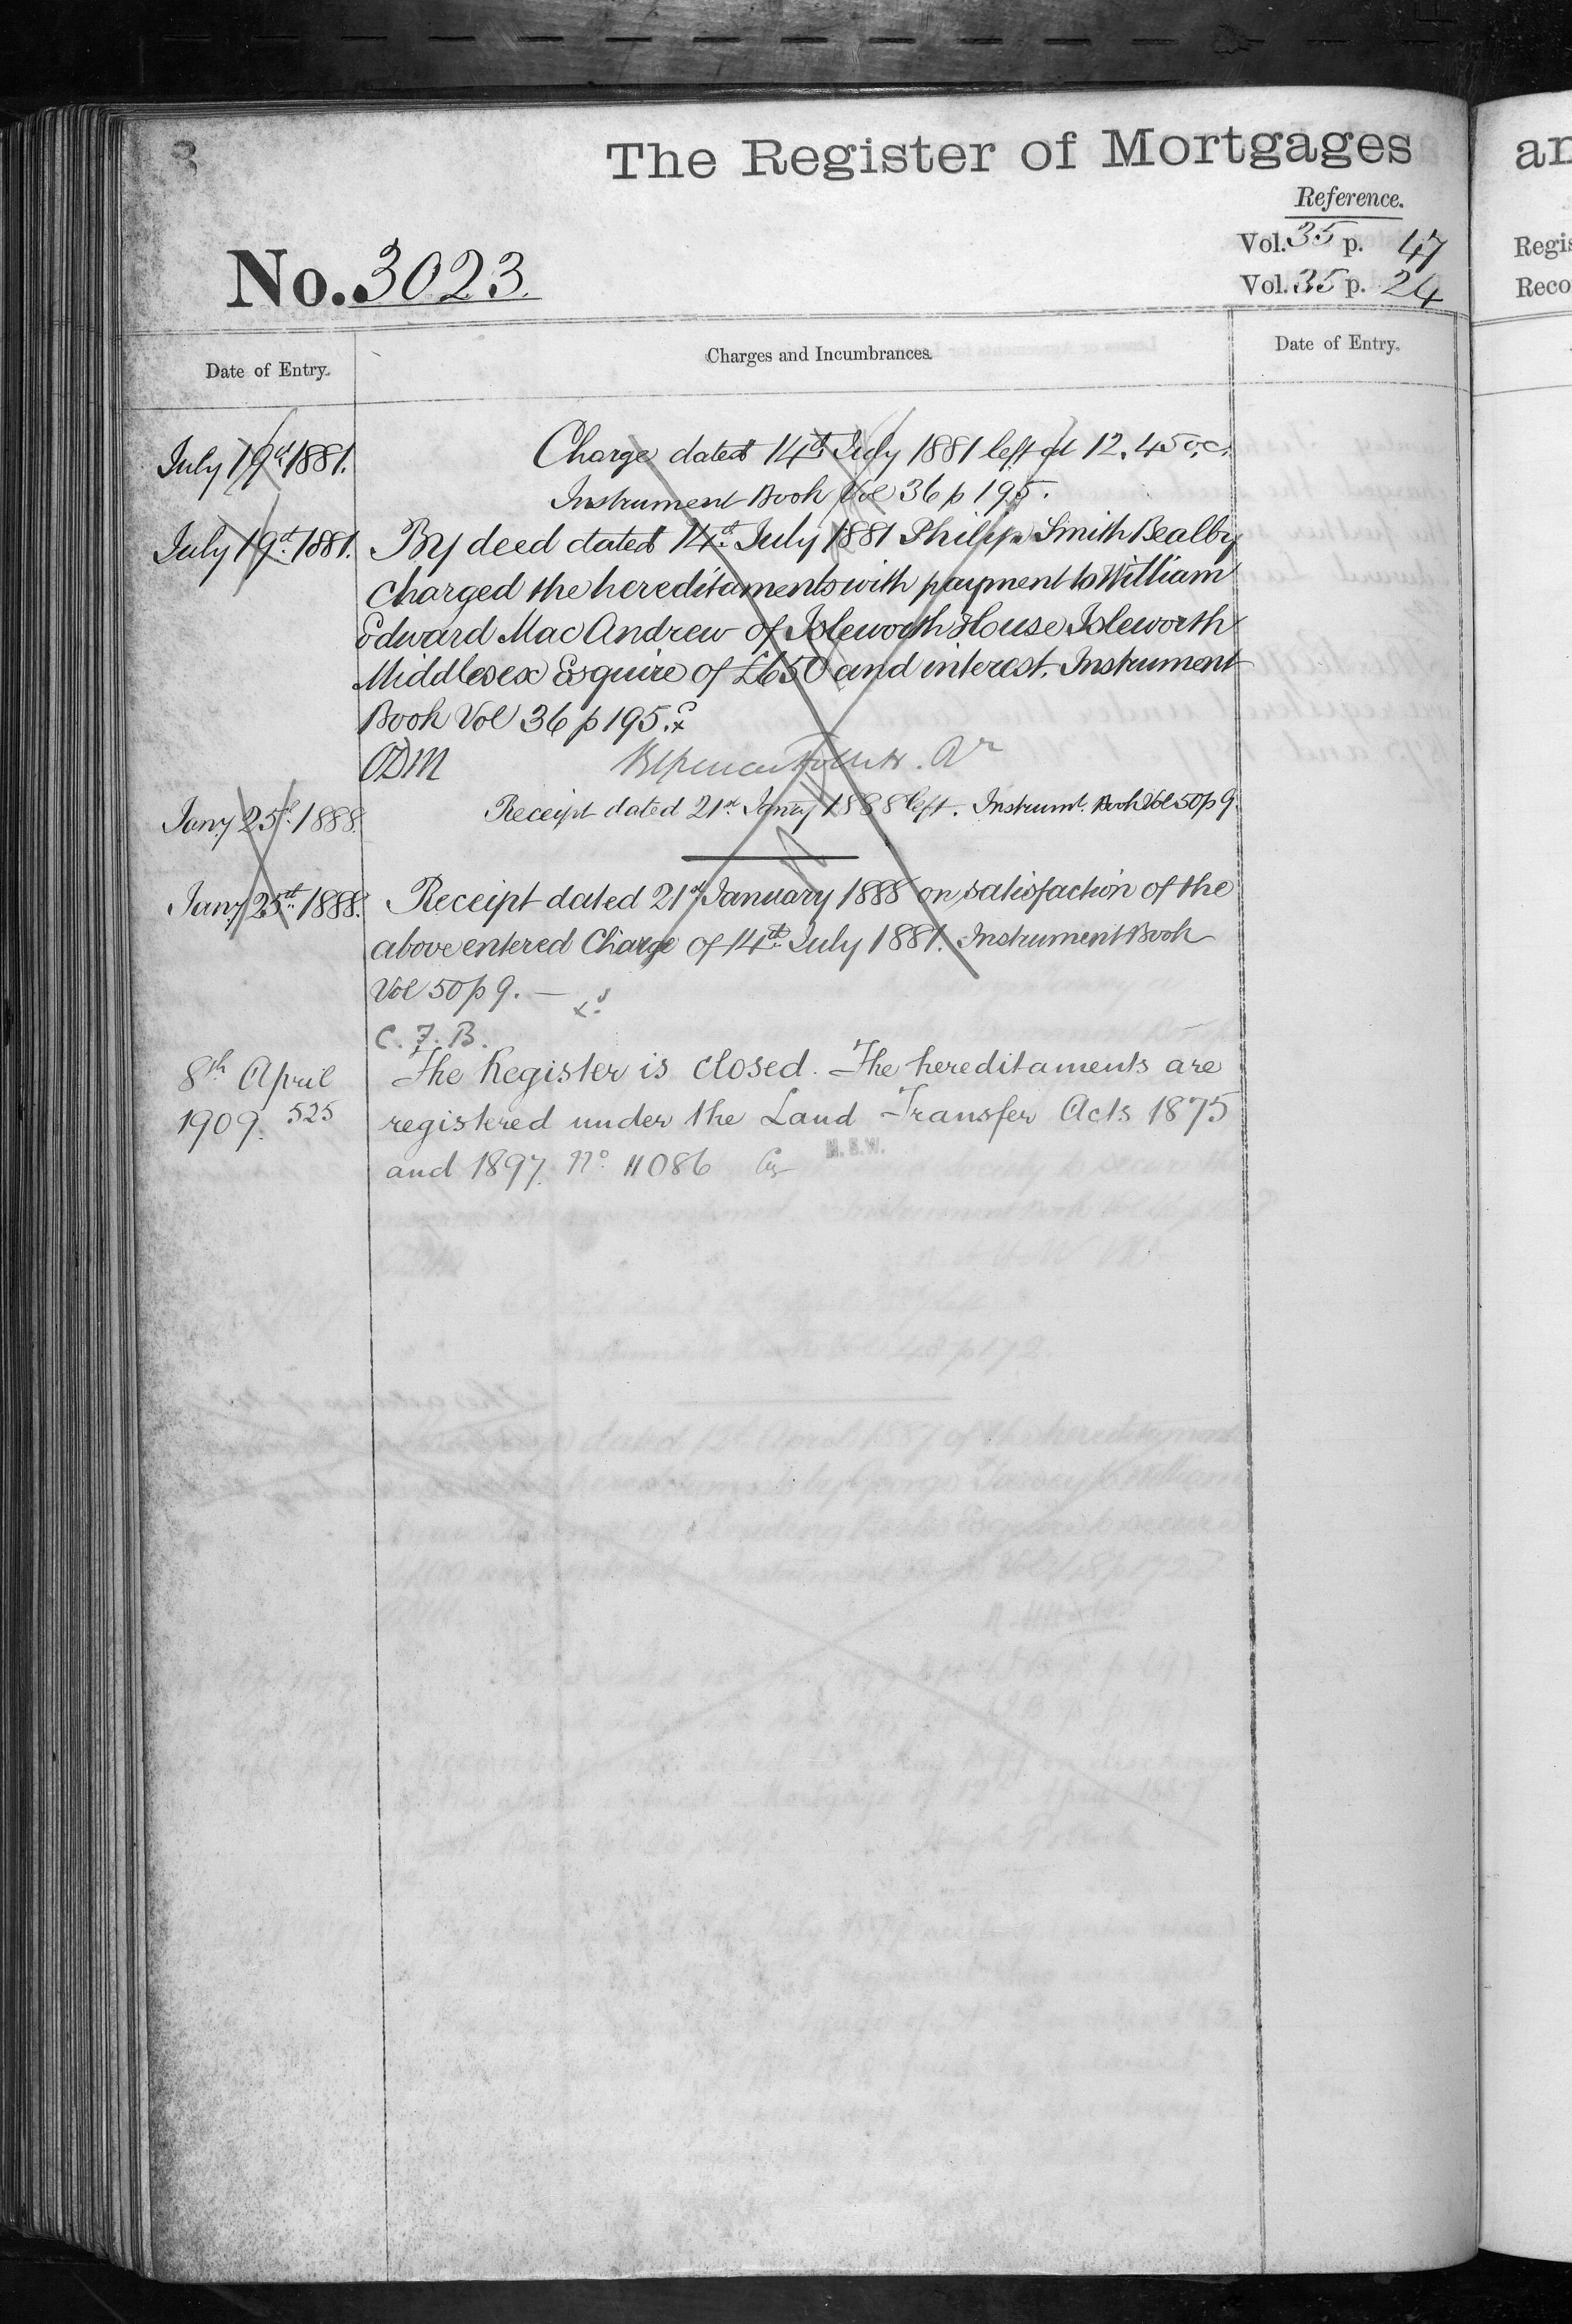 The Register of Mortgages
Reference.
Vol. 35 p. 47
Vol. 35 p. 24
No. 3023.
Date of Entry.
Charges and Incumbrances.
Date of Entry.
July 19th 1881.
Charge dated 14th July 1881 left at 12.45 o.c.
Instrument Book Vol 36 p 195.
July 19th 1881.
By deed dated 14th July 1881 Philip Smith Bealby
charged the hereditaments with payment to William
Edward Mac Andrew of Isleworth House Isleworth
Middlesex Esquire of £650 and interest. Instrument
Book Vol 36 p 195.
ODM
Jany 25th 1888.
Receipt dated 21st Jany 1888 left. Instrumt. Book Vol 50 p 9.
Jany 25th 1888.
Receipt dated 21st January 1888 on satisfaction of the
above entered Charge of 14th July 1881. Instrument Book
Vol 50 p 9. —
C. F. B.
8th April
1909. 525
The Register is closed. The hereditaments are
registered under the Land Transfer Acts 1875
and 1897. No 11086
H.S.W.
ar
Regis
Reco